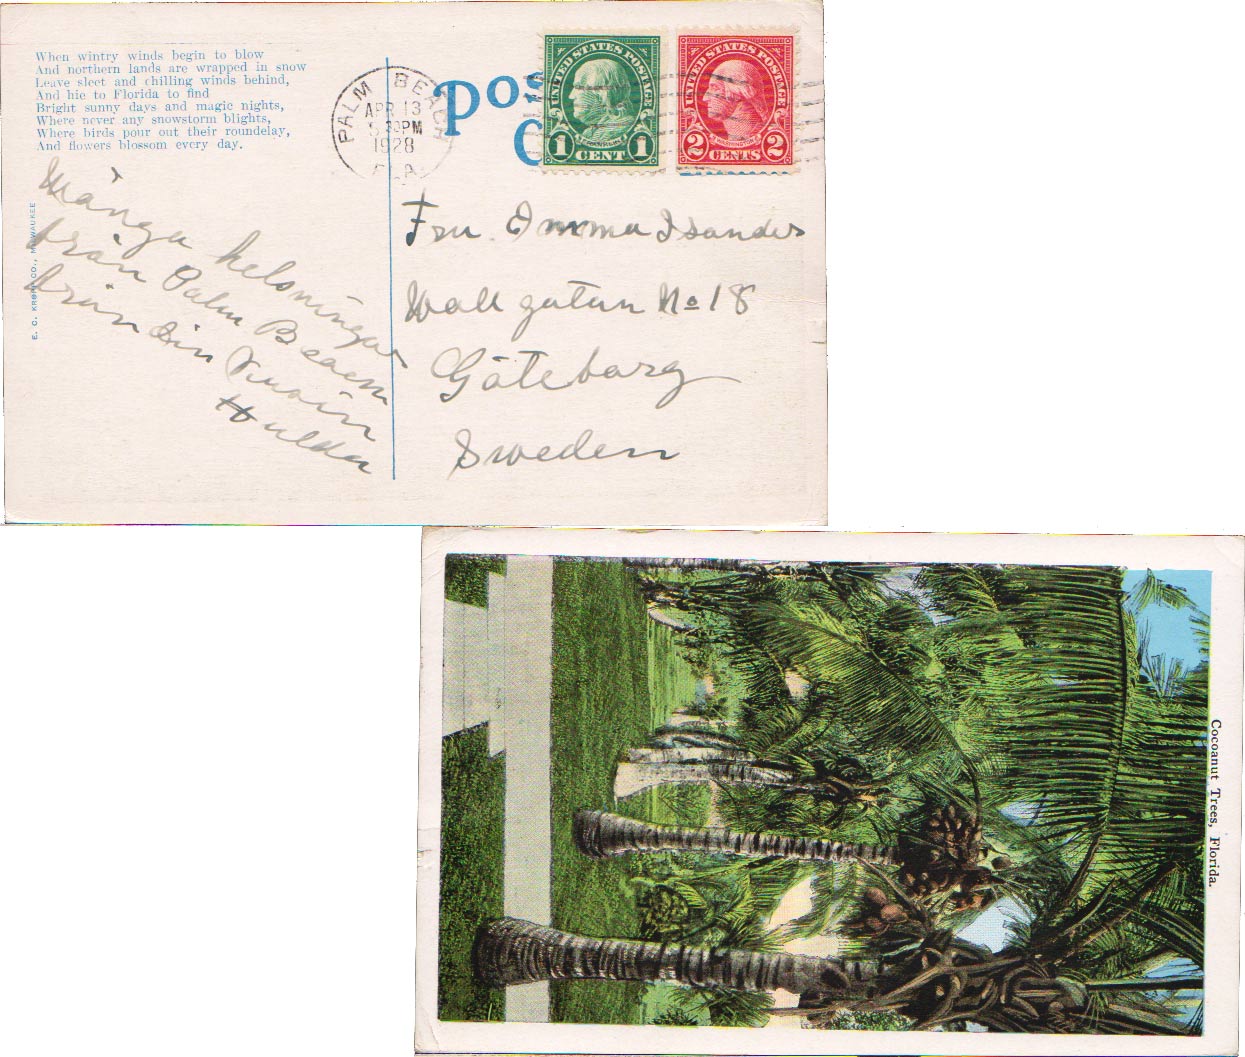 When wintry winds begin to blow
And northern lands are wrapped in snow
Leave sleet and chilling winds behind,
And hie to Florida to find
Bright sunny days and magic nights,
Where never any snowstorm blights,
Where birds pour out their roundelay,
And flowers blossom every day.
PALM BEACH
APR 13
5 30PM
1928
FLA
POS
C
UNITED STATES POSTAGE
FRANKLIN
1 CENT 1
UNITED STATES POSTAGE
WASHINGTON
2 CENTS 2
E. C. KROPP CO., MILWAUKEE
Många helsningar
från Palm Beach
från din
Hulda
Fru Emma Isander
Wall gatan No 18
Göteborg
Sweden
Cocoanut Trees, Florida.